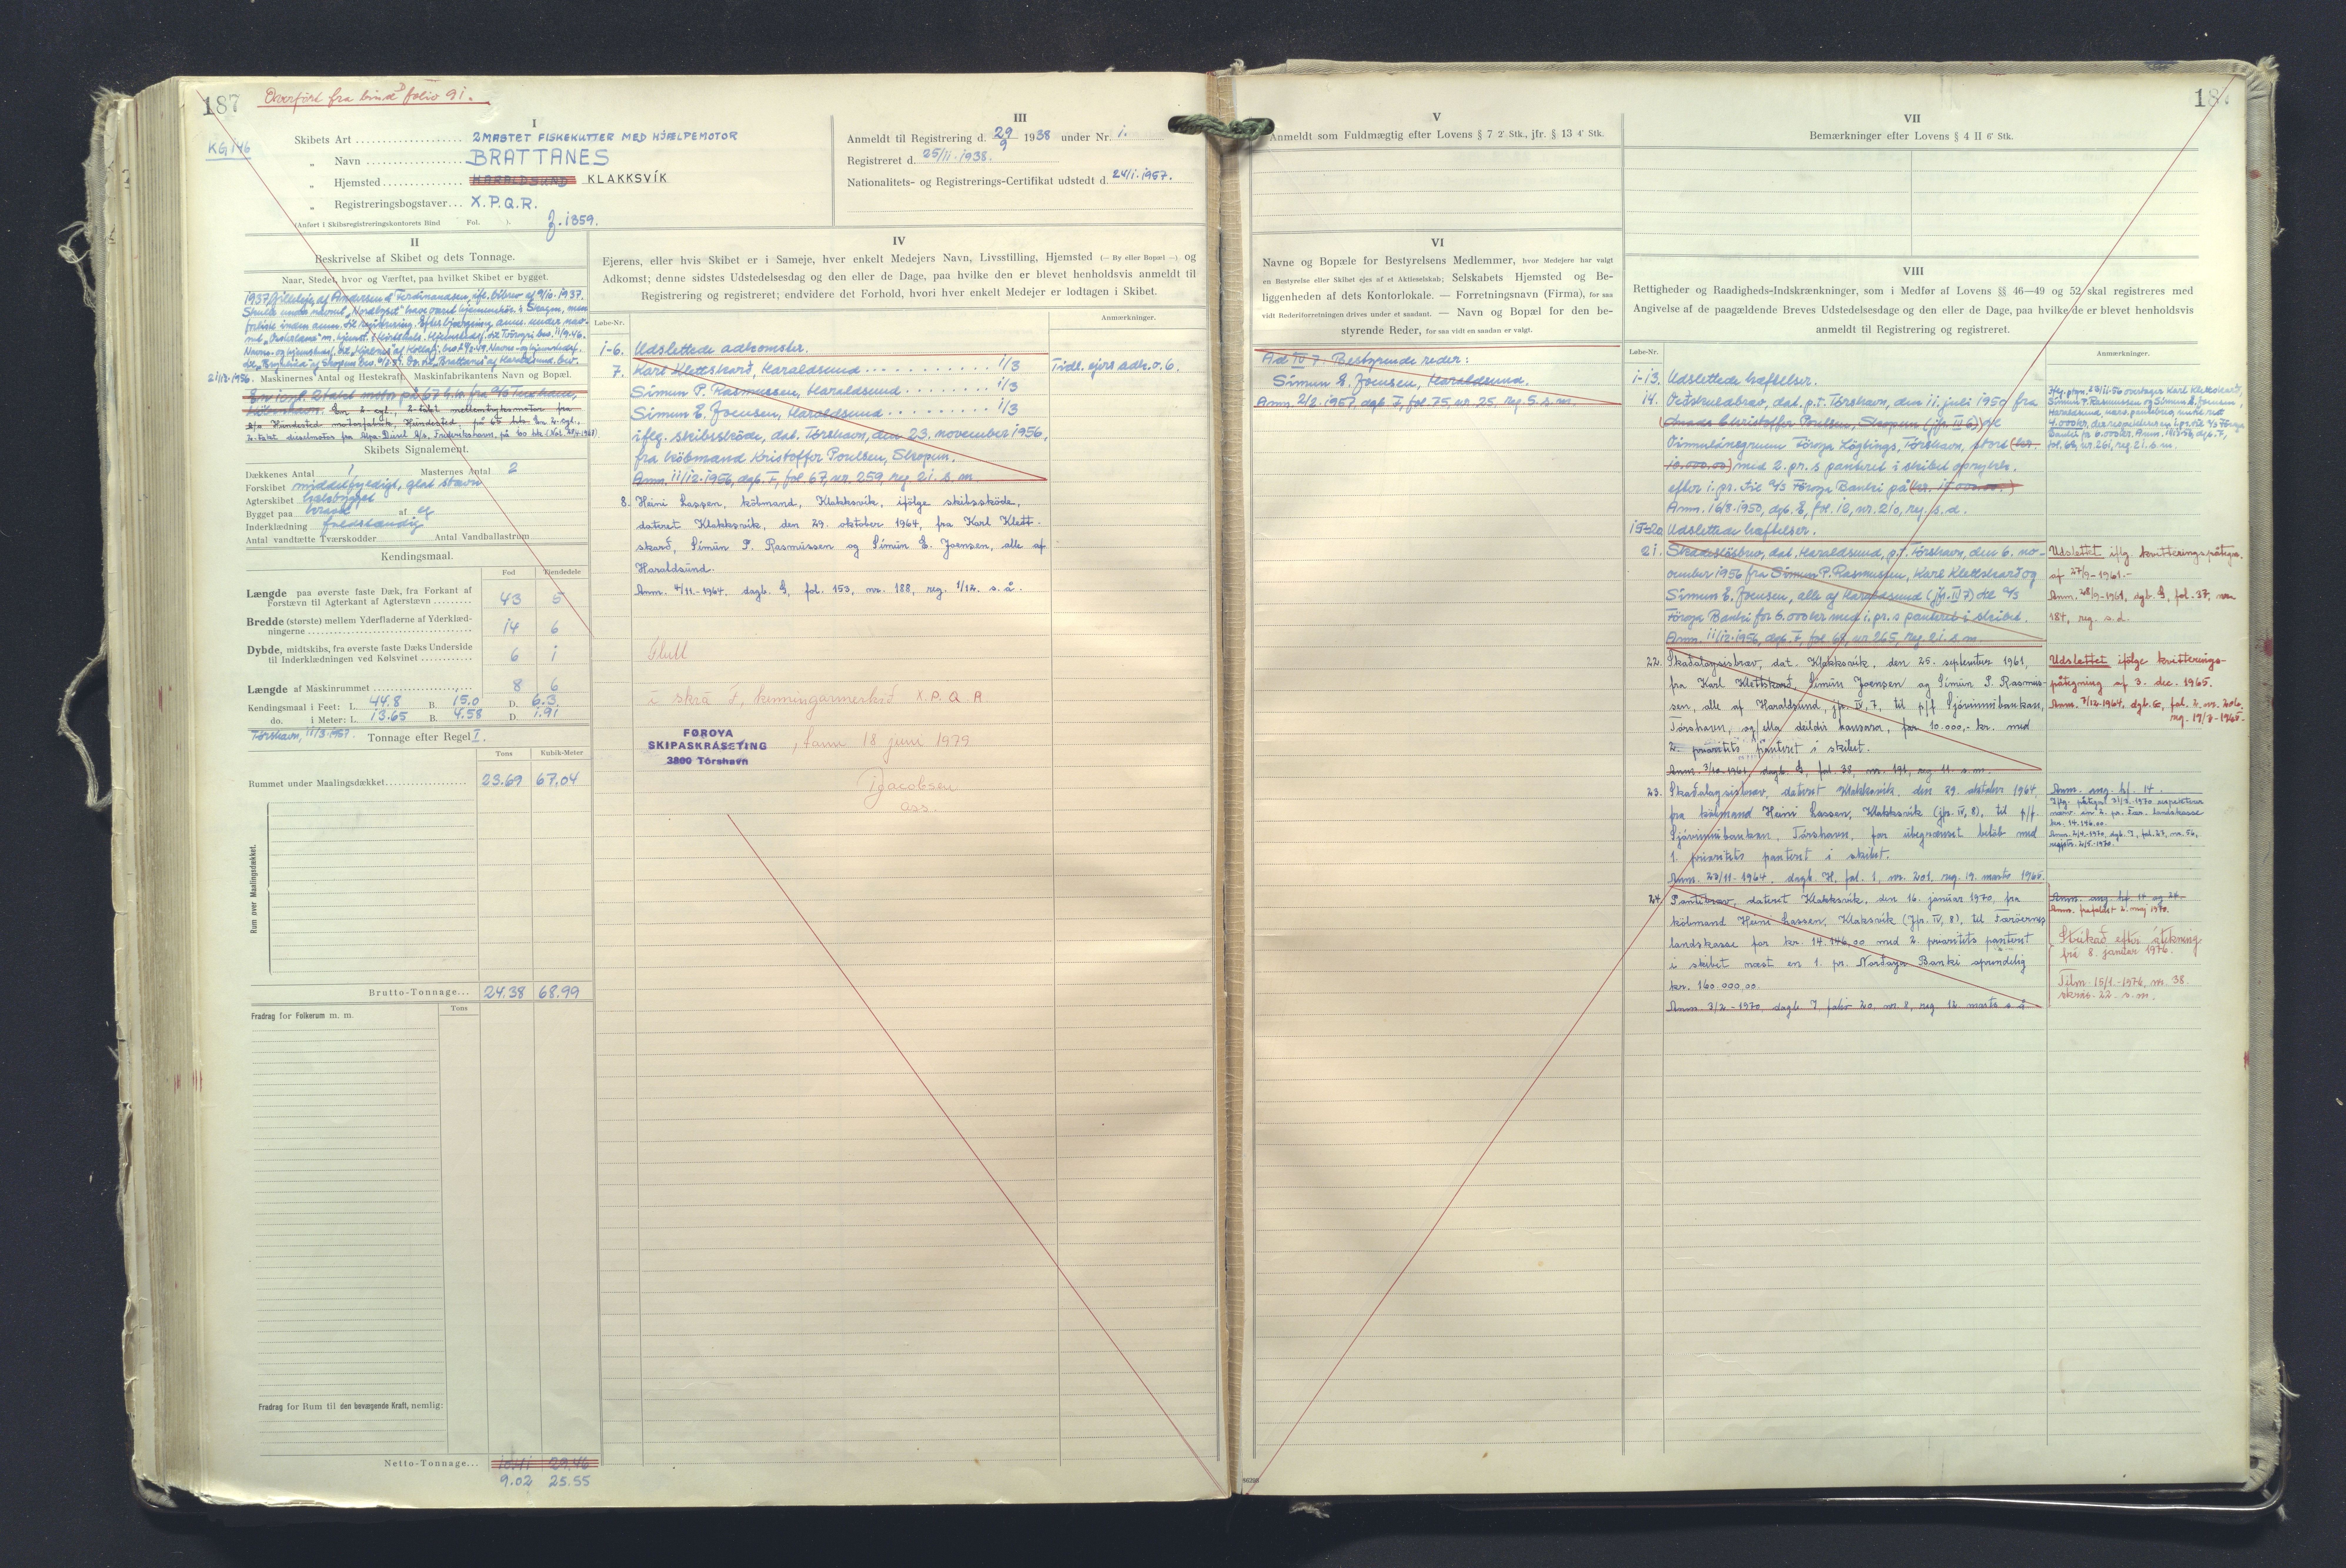 187
Overført fra bind folio 91.
KG 146
I
Skibets Art 2 MASTET FISKEKUTTER MED HJÆLPEMOTOR
„ Navn BRATTANES
„ Hjemsted HARALDSUND KLAKKSVÍK
„ Registreringsbogstaver... X.P.Q.R.
(Anført i Skibsregistreringskontorets Bind Fol. ). f. 1359.
III
Anmeldt til Registrering d. 29/9 1938 under Nr. 1.
Registreret d. 25/11.1938.
Nationalitets- og Registrerings-Certifikat udstedt d. 24/1.1957.
II
Beskrivelse af Skibet og dets Tonnage.
Naar, Stedet, hvor og Værftet, paa hvilket Skibet er bygget.
1937, Gilleleje, af Andersen & Ferdinandsen, ifl. bilbrev af 9/10.1937.
21/12.1956.
Maskinernes Antal og Hestekraft, Maskinfabrikantens Navn og Bopæl.
En 1 cyl. 2 takt motor på 67 h.k. fra A/S Tuxham,
København. En 2-cyl., 2-takt mellemtryksmotor fra
A/S Hundested motorfabrik, Hundested, på 65 hk. En 2-cyl.
2-takt dieselmotor fra Alpa-Diesel A/S, Frederikshavn, på 60 hk
Skibets Signalement.
Dækkenes Antal 1 Masternes Antal 2
Forskibet middelfyldigt, glat stævn
Agterskibet
Bygget paa kravel af eg
Inderklædning fuldstændig
Antal vandtætte Tværskodder Antal Vandballastrum
Kendingsmaal.
Fod Tiendedele
Længde paa øverste faste Dæk, fra Forkant af
Forstævn til Agterkant af Agterstævn 43 5
Bredde (største) mellem Yderfladerne af Yderklæd-
ningerne 14 6
Dybde, midtskibs, fra øverste faste Dæks Underside
til Inderklædningen ved Kølsvinet 6 1
Længde af Maskinrummet 8 6
Kendingsmaal i Feet: L. 44.8 B. 15.0 D. 6.3
do. i Meter: L. 13.65 B. 4.58 D. 1.91
Tórshavn, 11/3.1957. Tonnage efter Regel I.
Tons Kubik-Meter
Rummet under Maalingsdækket 23.69 67.04
Rum over Maalingsdækket.
Brutto-Tonnage... 24.38 68.99
Fradrag for Folkerum m. m. Tons
Fradrag for Rum til den bevægende Kraft, nemlig:
Netto-Tonnage... 10.41 29.46
9.02 25.55
IV
Ejerens, eller hvis Skibet er i Sameje, hver enkelt Medejers Navn, Livsstilling, Hjemsted (— By eller Bopæl —) og
Adkomst; denne sidstes Udstedelsesdag og den eller de Dage, paa hvilke den er blevet henholdsvis anmeldt til
Registrering og registreret; endvidere det Forhold, hvori hver enkelt Medejer er lodtagen i Skibet.
Løbe-Nr. Anmærkninger.
1-6. Udslettede adkomster.
7. Karl Klettskarð, Haraldsund 1/3 Tidl. ejers adk. o. 6.
Símun P. Rasmussen, Haraldsund 1/3
Símun E. Joensen, Haraldsund 1/3
iflg. skibsskøde, dat. Tórshavn, den 23. november 1956,
fra købmand Kristoffer Poulsen, Skopun.
Anm. 11/12.1956, dagb. F, fol. 67, nr. 259, reg. 21. s. m.
8. Heini Lassen, købmand, Klakksvik, ifølge skibsskøde,
dateret Klakksvik, den 29. oktober 1964, fra Karl Klett-
skarð, Símun P. Rasmussen og Símun E. Joensen, alle af
Haraldsund.
Anm. 4/11-1964, dagb. G, fol. 153, nr. 188, reg. 1/12. s. å.
Flutt
í skrá F, kenningarmerkið X.P.Q.R
FØROYA
SKIPASKRÁSETING
3800 Tórshavn
, tann 18 juni 1979
Jacobsen
ass.
187
V
Anmeldt som Fuldmægtig efter Lovens § 7 2' Stk., jfr. § 13 4' Stk.
VI
Navne og Bopæle for Bestyrelsens Medlemmer, hvor Medejere har valgt
en Bestyrelse eller Skibet ejes af et Aktieselskab; Selskabets Hjemsted og Be-
liggenheden af dets Kontorlokale. — Forretningsnavn (Firma), for saa
vidt Rederiforretningen drives under et saadant. — Navn og Bopæl for den be-
styrende Reder, for saa vidt en saadan er valgt.
Ad IV 7. Bestyrende reder:
Símun E. Joensen, Haraldsund.
Anm. 2/2.1957, dagb. F, fol. 75, nr. 25, reg. 5. s. m.
VII
Bemærkninger efter Lovens § 4 II 6' Stk.
VIII
Rettigheder og Raadigheds-Indskrænkninger, som i Medfør af Lovens §§ 46—49 og 52 skal registreres med
Angivelse af de paagældende Breves Udstedelsesdage og den eller de Dage, paa hvilke de er blevet henholdsvis
anmeldt til Registrering og registreret.
Løbe-Nr. Anmærkninger.
1-13. Udslettede hæftelser.
14. Veðskuldabrøv, dat. p.t. Tórshavn, den 11. juli 1950 fra
Christoffer Poulsen, Skopun (jfr. IV 6)
Føroya Løgtings, Tórshavn, stort (kr.
10.000.00) med 2. pr.s panteret i skibet oprykk.
efter 1. pr. til A/S Føroya Banki på (kr. 15.000.00.)
Anm. 16/8.1950, dgb. E, fol. 12, nr. 210, reg. s. d.
15-20 Udslettede hæftelser.
21. Skadesløsbrev, dat. Haraldsund, p.t. Tórshavn, den 6. no-
vember 1956 fra Símun P. Rasmussen, Karl Klettskarð og
Símun E. Joensen, alle af Haraldsund (jfr. IV 7) til A/S
Føroya Banki for 6.000 kr med 1. pr.s panteret i skibet.
Anm. 11/12.1956, dgb. F, fol. 68, nr. 265, reg. 21. s. m.
Udslettet iflg. kvitteringspåtegn.
af 27/9-1961.-
Anm. 28/9-1961, dgb. G, fol. 37, nr.
184, reg. s.d.
22. Skaðaloysisbrøv, dat. Klakksvik, den 25. september 1961,
fra Karl Klettskarð, Símun Joensen og Símun P. Rasmus-
sen, alle af Haraldsund, jfr. IV, 7, til p/f Sjóvinnubankan,
Tórshavn, og/ella deildir hansara, for 10.000,- kr. med
2. prioritets panteret i skibet.
Anm. 3/10-1961, dagb. G, fol. 38, nr. 191, reg. 11. s. m.
Udslettet ifølge kvitterings-
påtegning af 3. dec. 1965.
23. Skaðaloysisbrøv, dateret Klakksvik, den 29. oktober 1964,
fra købmand Heini Lassen, Klakksvik (jfr. IV, 8), til p/f.
Sjóvinnubankan, Tórshavn, for ubegrænset beløb med
1. prioritets panteret i skibet.
Anm. 23/11-1964, dagb. H, fol. 1, nr. 201, reg. 19. marts 1965.
Anm. ang. hf. 14.
24. Pantebrev, dateret Klakksvik, den 16. januar 1970, fra
købmand Heini Lassen, Klaksvik (jfr. IV, 8), til Færøernes
landskasse for kr. 14.146,00 med 2. prioritets panteret
i skibet næst en 1. pr. Norðoya Banki oprindelig
kr. 160.000,00.
Anm. 3/2-1970, dagb. I folio 20, nr. 8, reg. 12. marts s. å.
Anm. ang. hf. 14 og 24.
Anm. frafaldet 2. maj 1970.
Strikað eftir áteknning
frá 8. januar 1976.
Tilm. 15/1.-1976, nr. 38.
skrás. 22. s.m.